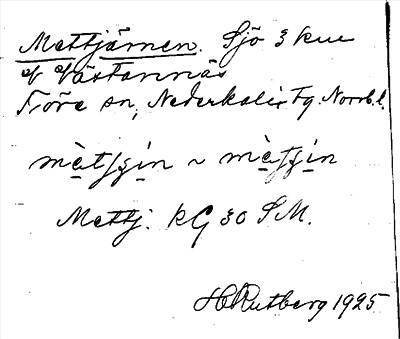 Mattjärnen. Sjö 3 km
af Västannäs
Töre sn, Nederkalix tg. Norrb.l.
màtjɟin ~ màtɟin
Mattj. KG 30 SM.
H Rutberg 1925